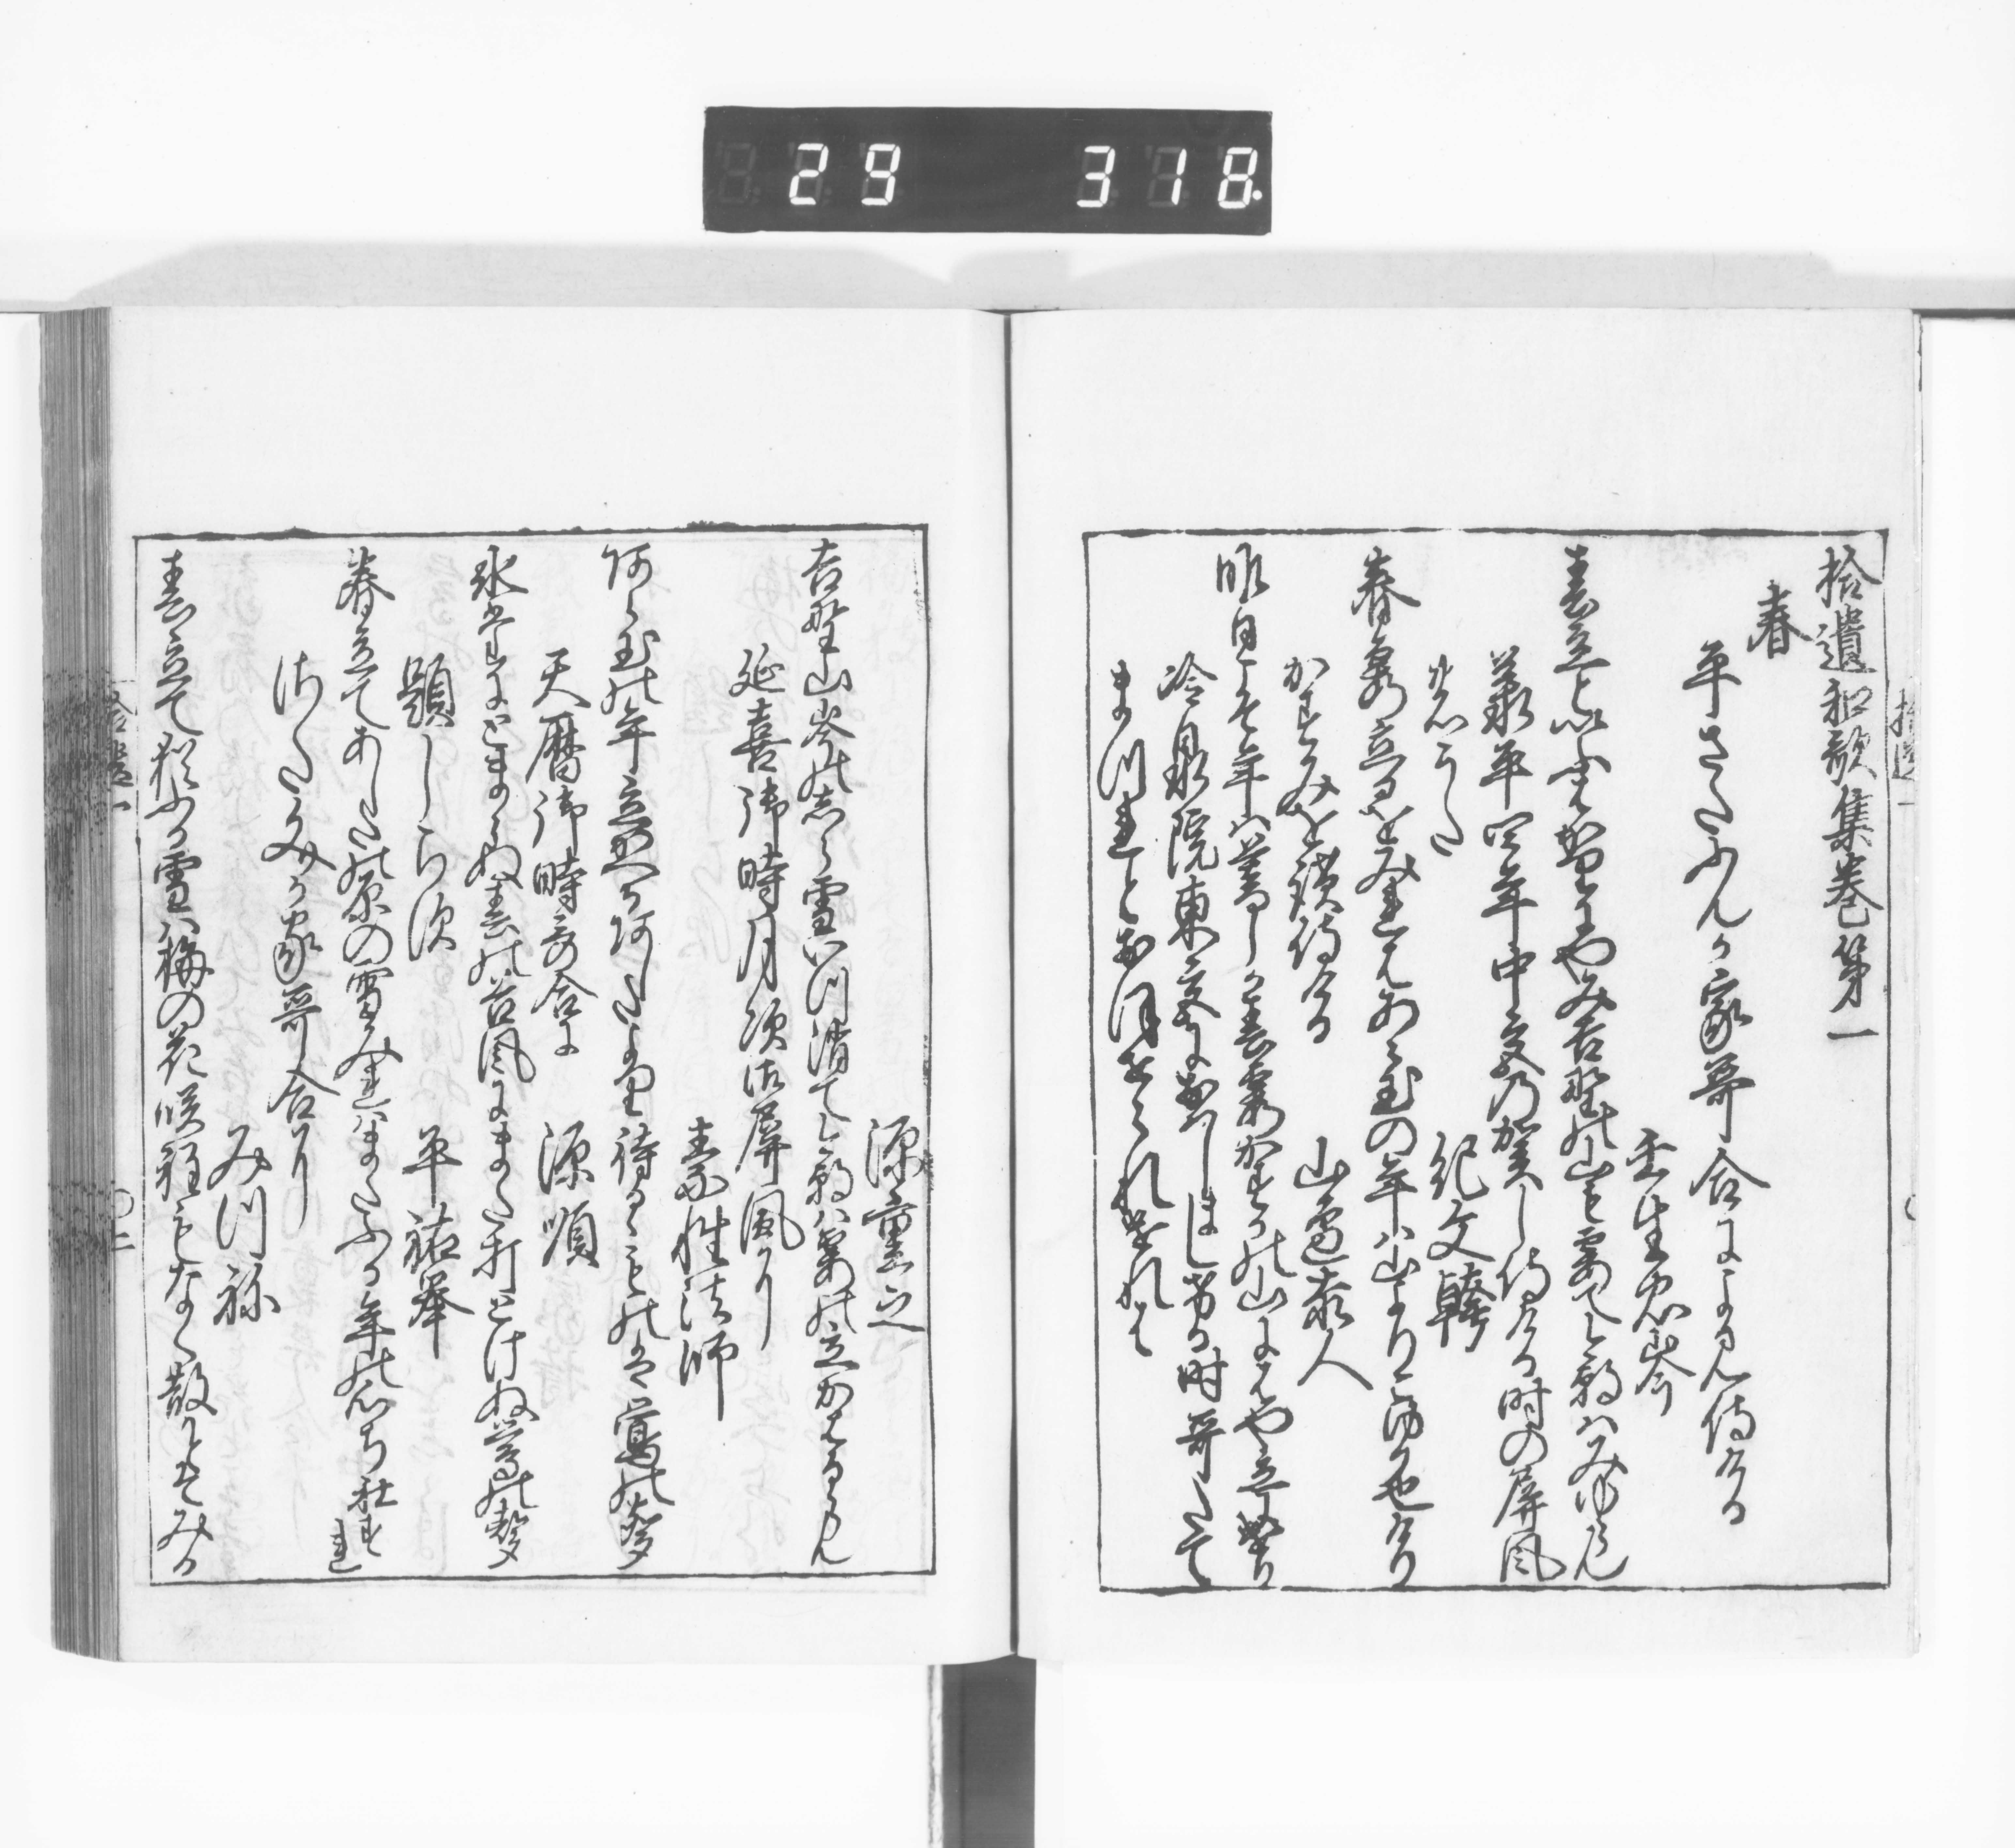 29 318
拾遺和歌集巻第一
春
平さたふんか家哥合によみ侍ける
壬生忠岑
春立といふ許にやみ吉野の山も霞てけさはみゆらん
承平四年中宮の賀し侍ける時の屏風
のうた
紀文幹
春霞立るをみれはあら玉の年は山よりこゆる也けり
かすみを読侍ける
山辺赤人
昨日こそ年は暮しか春霞かすかの山にはや立にけり
冷泉院東宮におはしましける時哥たて
まつれとおほせられけれは
源重之
吉野山岑のしら雪いつ消てけさは霞の立かはるらん
延喜御時月次御屏風に
素性法師
あら玉の年立帰るあしたより待るゝ物は鴬の聲
天暦御時哥合に
源順
氷たにとまらぬ春の谷風にまた打とけぬ鴬の聲
題しらす
平祐挙
春立てあしたの原の雪みれはまたふる年の心ち社すれ
さたふんか家哥合に
みつね
春立て猶ふる雪は梅の花咲程もなく散かとそみる
拾遺一